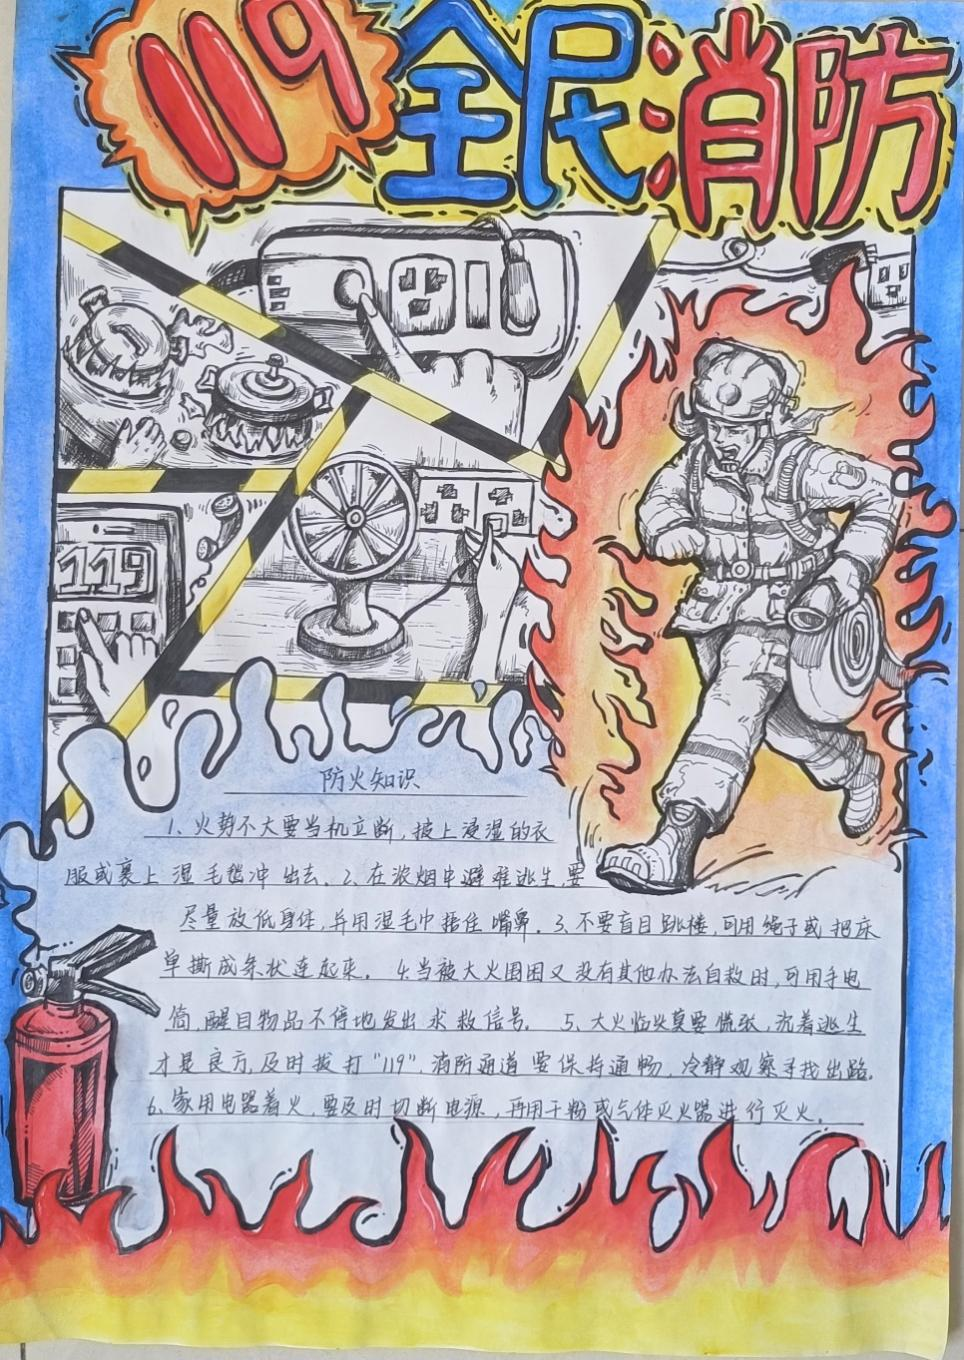 119 全民消防
119
防火知识
1、火势不大要当机立断,披上浸湿的衣
服或裹上湿毛毯冲出去。2、在浓烟中避难逃生,要
尽量放低身体,并用湿毛巾捂住嘴鼻。3、不要盲目跳楼,可用绳子或把床
单撕成条状连起来。4、当被大火围困又没有其他办法自救时,可用手电
筒,醒目物品不停地发出求救信号。5、大火临火莫要慌张,沉着逃生
才是良方,及时拨打“119”,消防通道要保持通畅,冷静观察寻找出路。
6、家用电器着火,要及时切断电源,再用干粉或气体灭火器进行灭火。